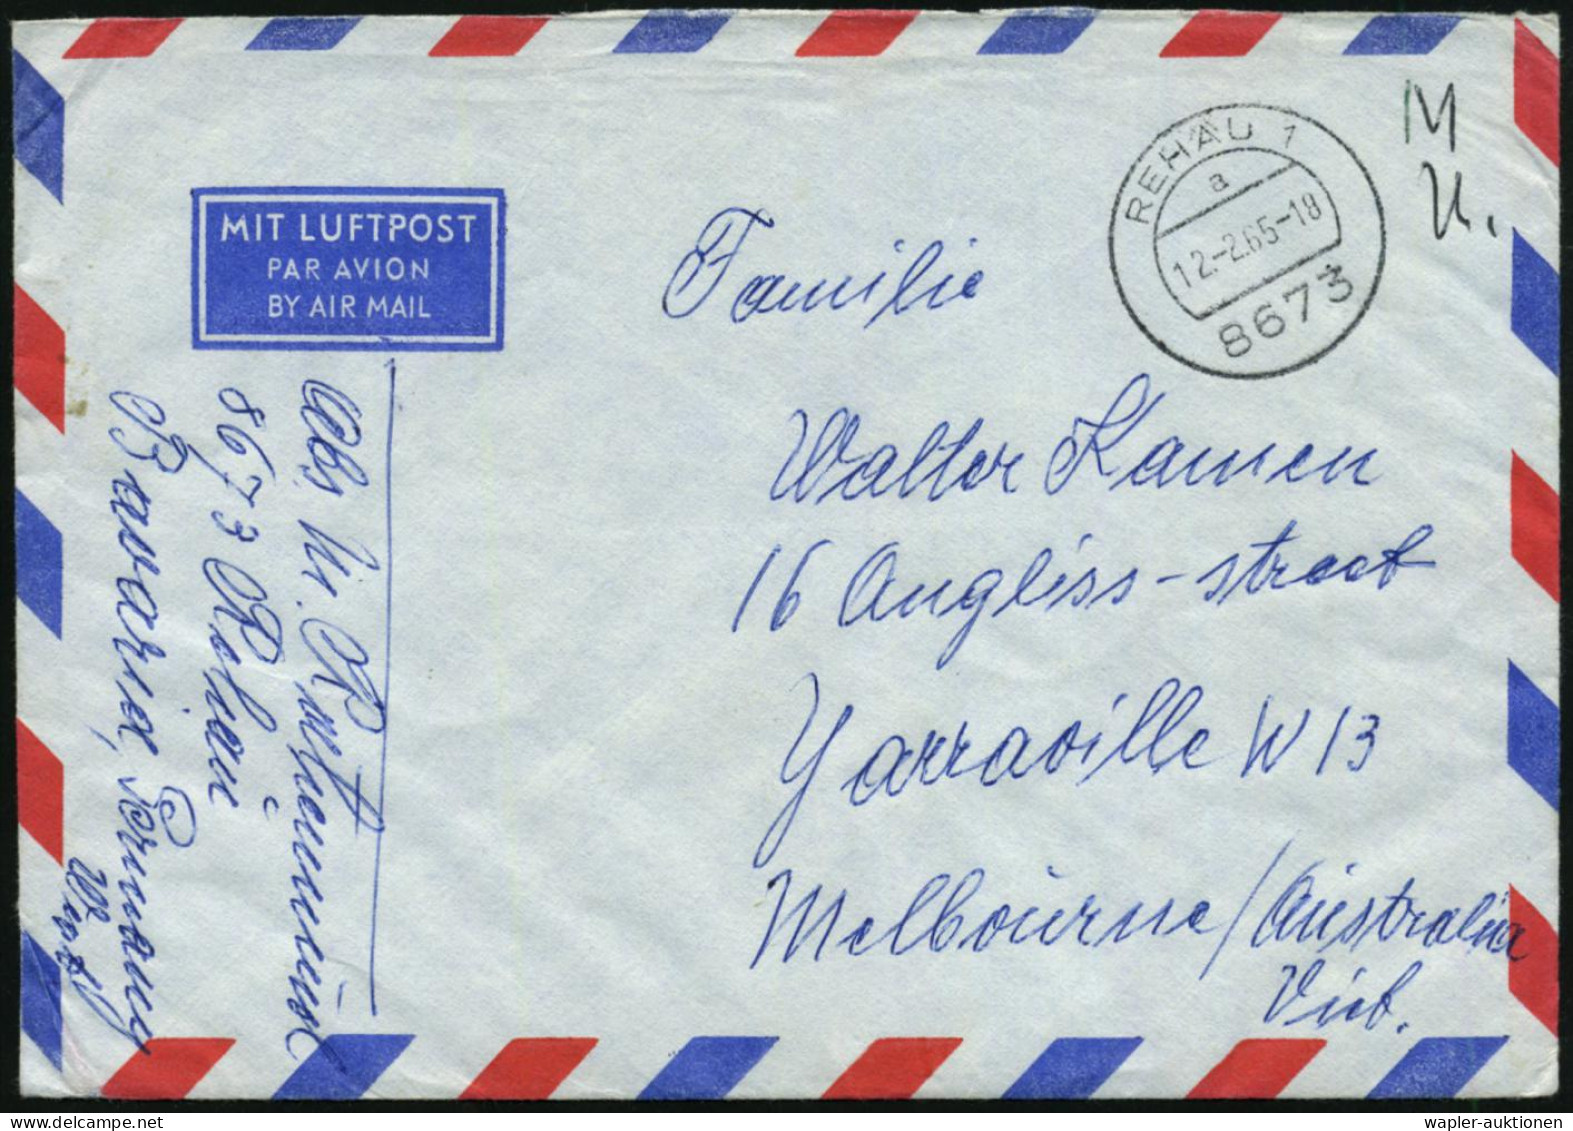 MIT LUFTPOST
PAR AVION
BY AIR MAIL
REHAU 1
a
12.-2.65-18
8673
M
K.
Familie
Walter Kamen
16 Angliss-street
Yarraville W 13
Melbourne/Australia
Vict.
Abs. K.
8673 Rehau
Bavaria, Germany
West
wapler-auktionen